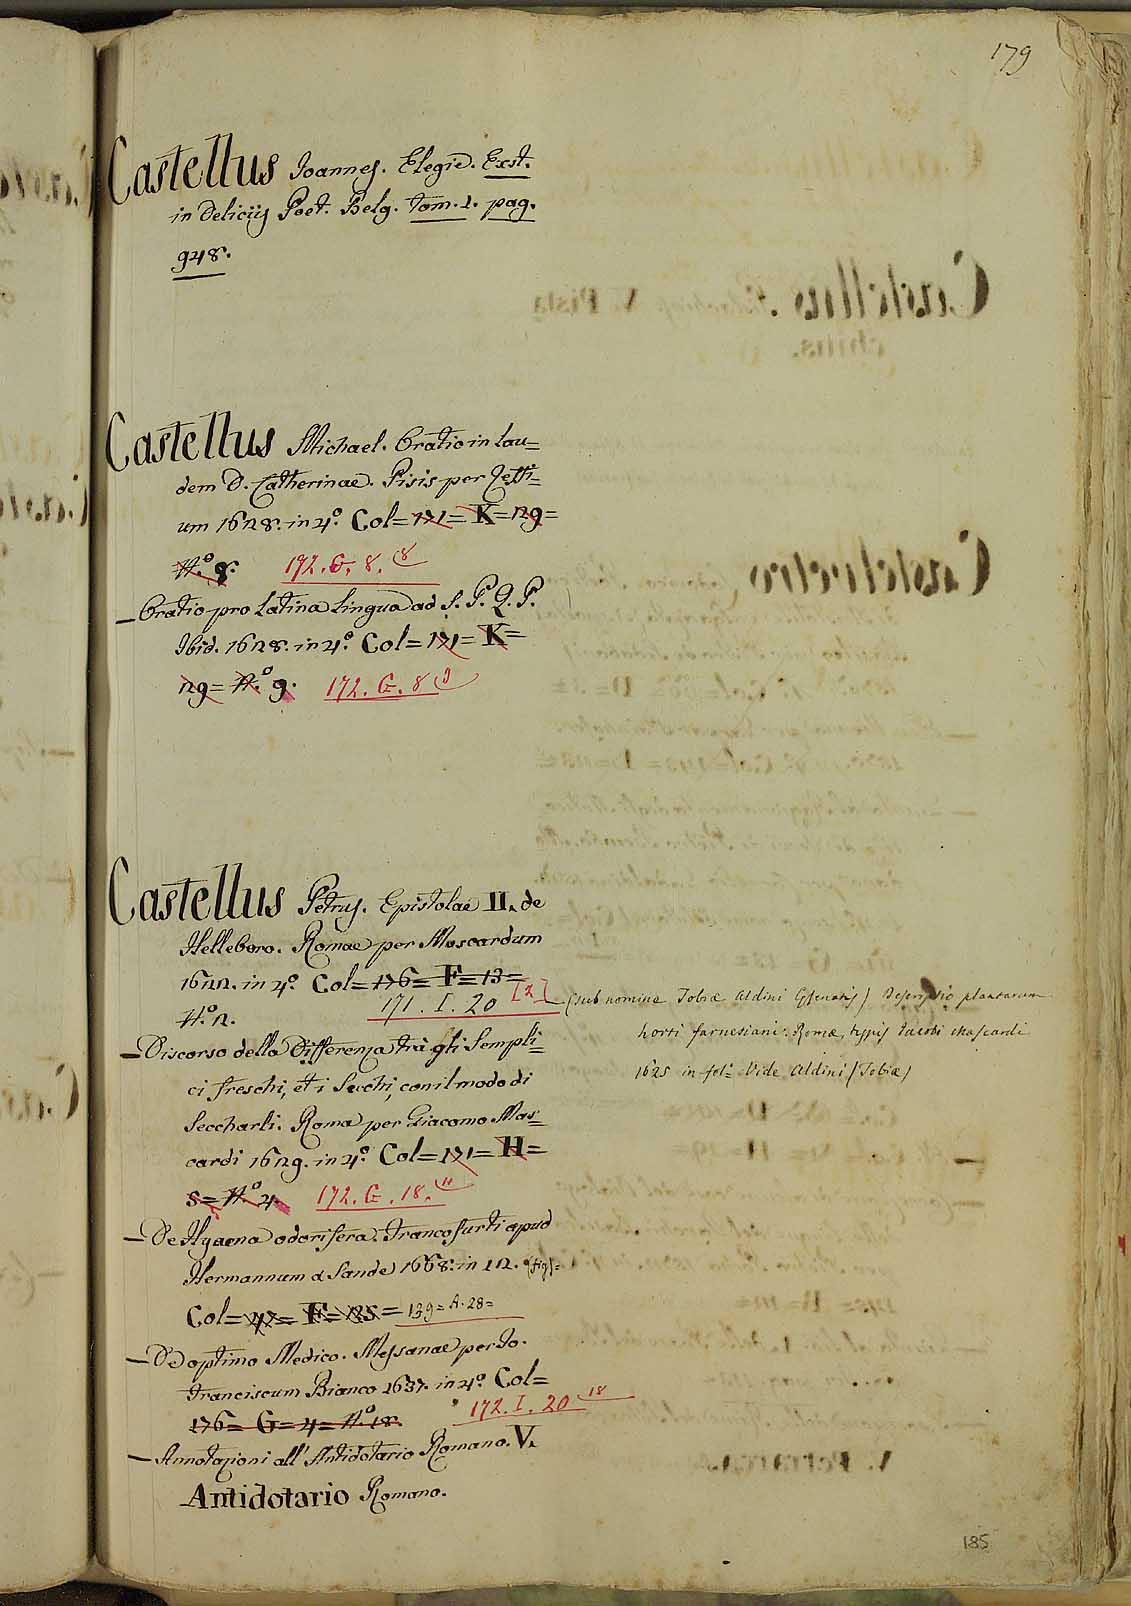 179
Castellus Joannes. Elegiæ. Exst.
in Delicijs Poet. Belg. tom. 1. pag.
948.
Castellus Michael. Oratio in lau=
dem D. Catherinae. Pisis per Zetti=
um 1628. in 4.º Col= 171= K= 29=
N.º 8. 172. G. 8. 8
— Oratio pro latina lingua ad S. P. Q. P.
Ibid. 1628. in 4.º Col= 171= K=
29= N.º 9. 172. G. 8 9
Castellus Petrus. Epistolae II. de
Helleboro. Romae per Mascardum
1622. in 4.º Col= 176= F= 13=
N.º 2. 171. I. 20 [2] — (sub nomine Tobiæ Aldini Cesenatis) Descriptio plantarum
horti farnesiani. Romæ, typis Jacobi Mascardi
1625 in fol.º Vide Aldini (Tobiæ)
— Discorso della Differenza trà gli Sempli=
ci freschi, et i Secchi, con il modo di
Seccharli. Roma per Giacomo Mas=
cardi 1629. in 4.º Col= 171= H=
5= N.º 4. 172. G. 18. 11
— De Hyaena odorifera. Francofurti apud
Hermannum à Sande 1668. in 12. (fig)=
Col= 47= F= 25= 139= A. 28=
— De optimo Medico. Messanae per Jo.
Franciscum Bianco 1637. in 4.º Col=
176= G= 4= N.º 18. 172. I. 20 18
— Annotazioni all' Antidotario Romano. V.
Antidotario Romano.
185